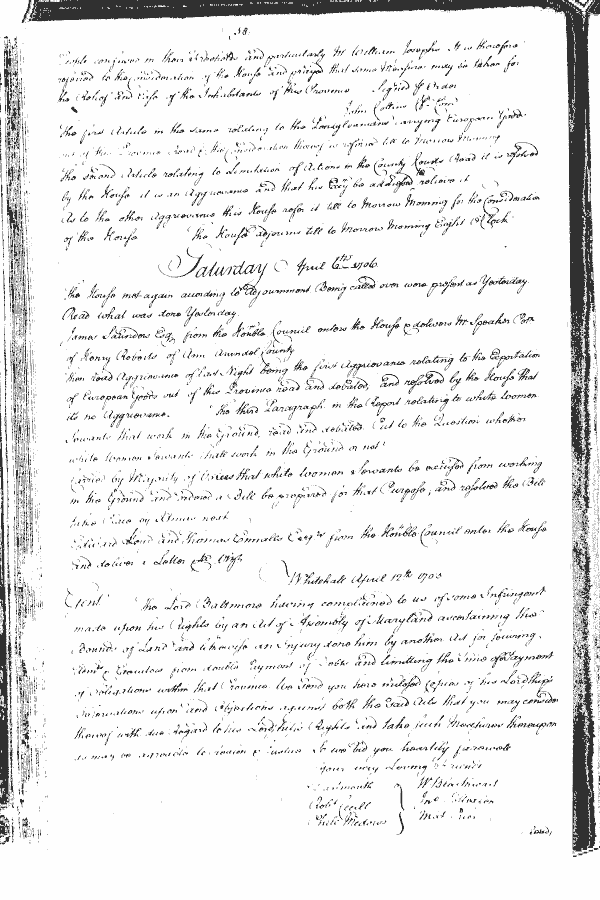 58.
People confined in their and particularly Mr William Josephs It is therefore
referred to the Consideration of the House and prayed that some Measures may be taken for
the Relief and Ease of the Inhabitants of this Province Signed Order
John Collins Cl Com
The first Article in the same relating to the Pensylvanians carrying European Goods
out of this Province read & the Consideration thereof is referred till to Morrow Morning
The second Article relating to Limitation of Actions in the County Courts Read it is resolved
by the House it is an Aggrievance and that his Excy be addressed to relieve it
As to the other Aggrievances this House refer it till to Morrow Morning for the Consideration
of the House The House adjourns till to Morrow Morning Eight o'Clock
Saturday April 6th 1706
The House met again according to Adjournment Being called over were present as Yesterday.
Read what was done Yesterday.
James Saunders Esq from the Honble Council enters the House & delivers Mr Speaker Petn
of Henry Roberts of Ann Arundel County
then read Aggrievance of last Night being the first Aggrievance relating to the Exportation
of European Goods out of this Province read and debated, and resolved by the House that
its no Aggrievance. The third Paragraph in the Report relating to white Women
Servants that work in the Ground, read and debated. Put to the Question whether
white Women Servants shall work in the Ground or not
Carried by Majority of Voices that white Women Servants be excused from working
in the Ground and ordered a Bill be prepared for that Purpose, and resolved the Bill
take
Edward Lloyd and Thomas Ennalls Esqrs from the Honble Council enter the House
and deliver a Letter
Whitehall April 12th 1705
Gent. The Lord Baltimore having complained to us of some Infringmt
made upon his Rights by an Act of Assembly of Maryland ascertaining the
Bounds of Land and likewise an Injury done him by another Act for securing
Admrs & Executors from double Payment of Debts and limitting the Time of Payment
of Obligations within that Province We send you here inclosed Copies of his Lordships
Observations upon and Objections against both the said Acts that you may consider
thereof with due Regard to his Lordships Rights and take such Measures thereupon
as may be agreeable to Reason & Justice So we bid you heartily farewell
Your very Loving Friends
Dartmouth W Blathwayt
Robt Cecill Jno Pollexfen
Phili Medows Mat Prior